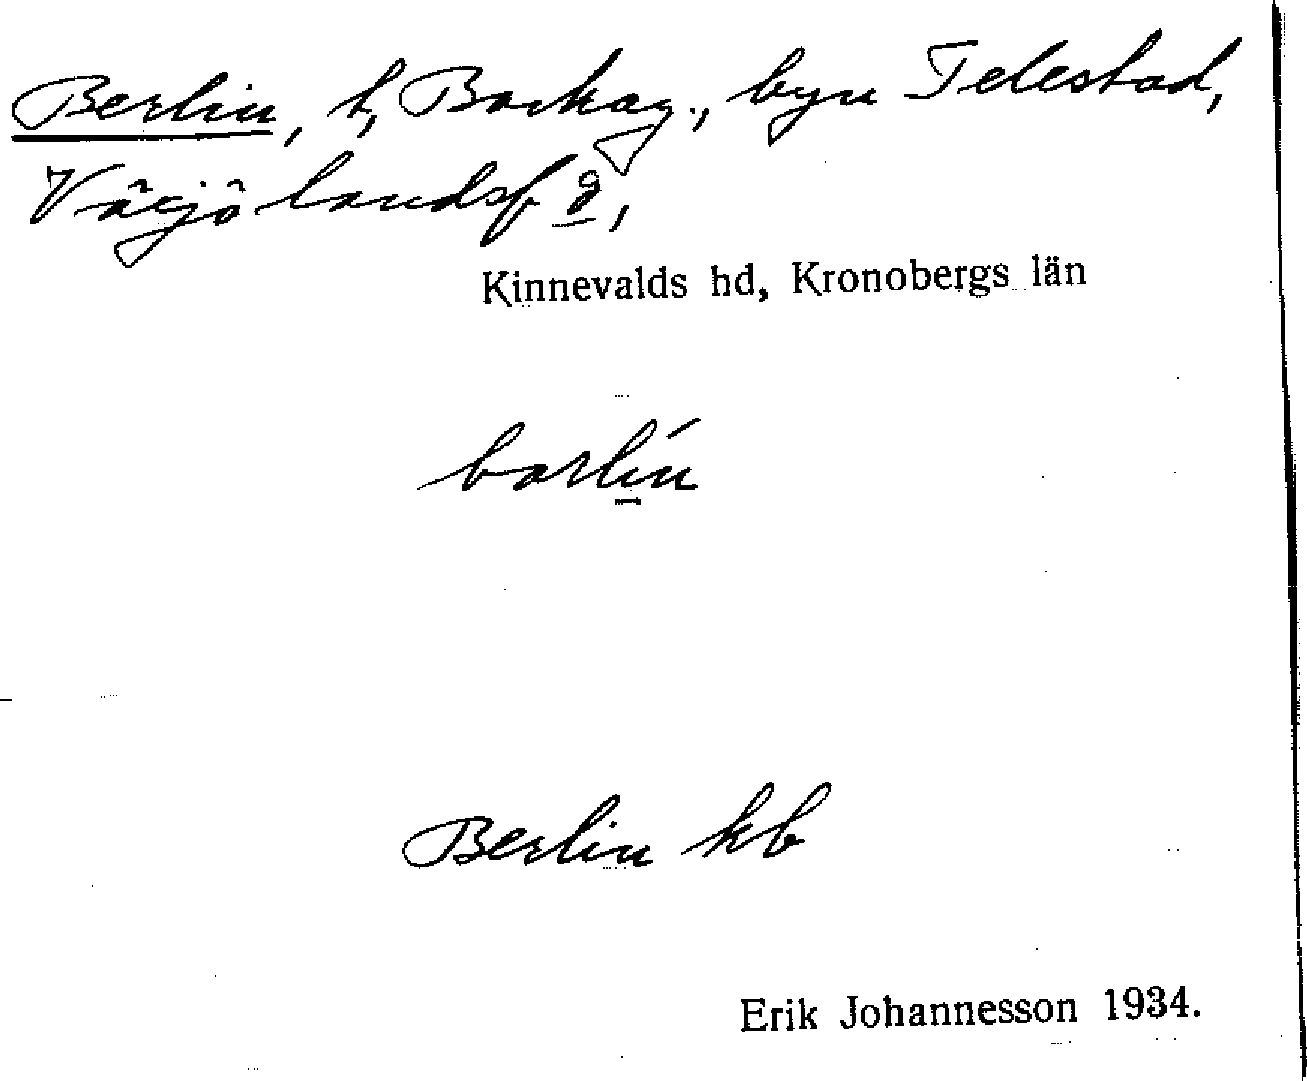 Berlin, t, Backag., byn Telestad,
Växjö landsf d,
Kinnevalds hd, Kronobergs län
barlín
Berlin kb
Erik Johannesson 1934.